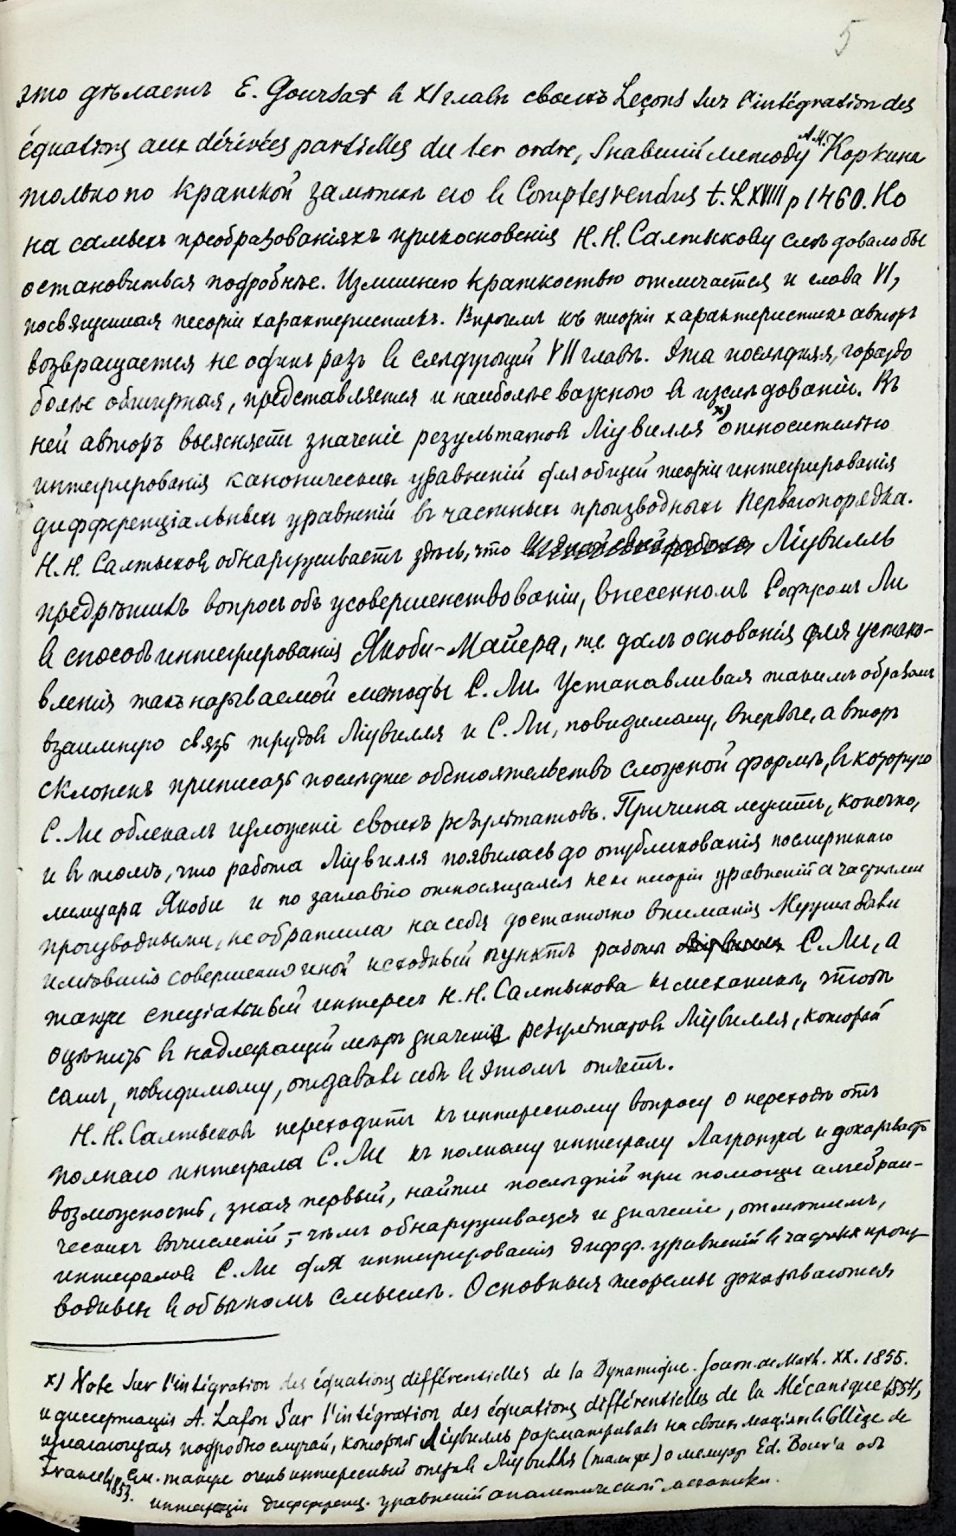 5
это дѣлаетъ E. Goursat в XI главѣ своихъ Leçons sur l'intégration des
équations aux dérivées partielles du 1er ordre, знавшій методу А.М. Коркина
только по краткой замѣткѣ его в Comptes rendus t. LXVIII p 1460. Но
на самыхъ преобразованіяхъ прикосновенія Н.Н. Салтыкову слѣдовало бы
остановиться подробнѣе. Излишнею краткостью отличается и глава VI,
посвященная теоріи характеристикъ. Впрочемъ къ теоріи характеристикъ авторъ
возвращается не одинъ разъ в слѣдующей VII главѣ. Эта послѣдняя, гораздо
болѣе обширная, представляется и наиболѣе важною в изслѣдованіи. Въ
ней авторъ выясняетъ значеніе результатов Ліувилля х) относительно
интегрированія каноническихъ уравненій для общей теоріи интегрированія
дифференціальныхъ уравненій въ частныхъ производныхъ перваго порядка.
Н.Н. Салтыков обнаруживаетъ здѣсь, что Ліувилль
предрѣшилъ вопросъ объ усовершенствованіи, внесенномъ Софусомъ Ли
в способъ интегрированія Якоби-Майера, и далъ основанія для устано-
вленія такъ называемой методы С. Ли. Устанавливая такимъ образомъ
взаимную связь трудов Ліувилля и С. Ли, повидимому, впервые, авторъ
склоненъ приписать послѣднее обстоятельство сложной формѣ, в которую
С. Ли облекалъ изложеніе своихъ результатовъ. Причина лежитъ, конечно,
и в томъ, что работа Ліувилля появилась до опубликованія посмертнаго
мемуара Якоби и по заглавію относящаяся не к теоріи уравненій с частными
производными, не обратила на себя достаточно вниманія. Нужны были
совершенно иной исходный пунктъ работы С. Ли, а
также спеціальный интересъ Н.Н. Салтыкова къ механикѣ, чтобъ
оцѣнить в надлежащей мѣрѣ значеніе результатов Ліувилля, который
самъ, повидимому, отдавалъ себѣ в этомъ отчетъ.
Н.Н. Салтыков переходитъ къ интересному вопросу о переходѣ отъ
полнаго интеграла С. Ли къ полному интегралу Лагранжа и доказываетъ
возможность, зная первый, найти послѣдній при помощи алгебраи-
ческихъ вычисленій, – чѣмъ обнаруживается и значеніе, отмѣтимъ,
интегралов С. Ли для интегрированія дифф. уравненій в частныхъ произ-
водныхъ в обычномъ смыслѣ. Основныя теоремы доказываются
х) Note sur l'intégration des équations différentielles de la Dynamique. Journ. de Math. XX. 1855.
и диссертація A. Lafon Sur l'intégration des équations différentielles de la Mécanique 1854,
излагающая подробно случай, который Ліувилль разсматривалъ на своихъ лекціяхъ в Collège de
France в 1853. См. также очень интересный отзыв Ліувилля (также) о мемуарѣ Ed. Bour'а объ
интеграціи дифференц. уравненій аналитической механики.